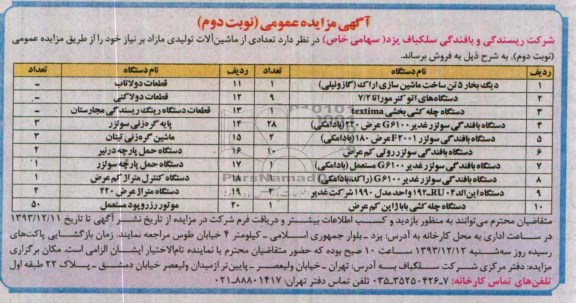 آگهی مزایده عمومی (نوبت دوم)
شرکت ریسندگی و بافندگی سلکباف یزد( سهامی خاص) در نظر دارد تعدادی از ماشین‌آلات تولیدی مازاد بر نیاز خود را از طریق مزایده عمومی
(نوبت دوم). به شرح ذیل به فروش برساند.
ردیف نام دستگاه تعداد ردیف نام دستگاه تعداد
1 دیگ بخار ۵ تن ساخت ماشین سازی اراک (گازوئیلی) 1 11 قطعات دولاتاب –
2 دستگاه‌های اتو کنر موراتا ۷/۲ 9 12 قطعات دولاکنی –
3 دستگاه چله کشی بخشی textima 1 13 قطعات دستگاه رینگ ریسندگی مجارستان –
4 دستگاه بافندگی سولزر غدیر G6100 عرض ۲۲۰ (بادامکی) 28 14 پایه گره‌زنی سولزر 3
5 دستگاه بافندگی سولزر F2001 عرض ۱۸۰ (بادامکی) 4 15 ماشین گره‌زنی تیتان 3
6 دستگاه بافندگی سولزر روتی کم عرض 10 16 دستگاه حمل پارچه درنیر 2
7 دستگاه بافندگی سولزر غدیر G6100 مستعمل (بادامکی) 1 17 دستگاه حمل پارچه سولزر 1
8 دستگاه بافندگی سولزر غدیر G6100 (راکد، بادامکی) 18 دستگاه کنترل متراژ کم عرض 1
9 دستگاه اپن اند RU04-۱۹۲ واحد مدل ۱۹۹۰ شرکت غدیر 2 19 دستگاه متراژ عرض ۲۲۰ 2
10 دستگاه چله کشی بابا ژاپن کم عرض 1 20 موتور رزروپود مستعمل 50
ParsNamad
متقاضیان محترم می‌توانند به منظور بازدید و کسب اطلاعات بیشتر و دریافت فرم شرکت در مزایده از تاریخ نشر آگهی تا تاریخ ۱۳۹۳/۱۲/۱۱
در ساعات اداری به محل کارخانه به آدرس: یزد - بلوار جمهوری اسلامی - کیلومتر ۴ خیابان طوس مراجعه نمایند. زمان بازگشایی پاکت‌های
رسیده روز سه‌شنبه ۱۳۹۳/۱۲/۱۲ ساعت ۱۰ صبح بوده که حضور متقاضیان محترم یا نماینده تام‌الاختیار ایشان الزامی است. مکان برگزاری
مزایده: دفتر مرکزی شرکت سلکباف به آدرس: تهران - خیابان ولیعصر - پایین‌تر از میدان ولیعصر خیابان دمشق - پلاک ۲۲ طبقه اول
تلفن‌های تماس کارخانه: ۷-۳۵۲۵۰۴۲۶-۰۳۵ تلفن تماس دفتر تهران: ۸۸۸۰۱۴۱۷-۰۲۱